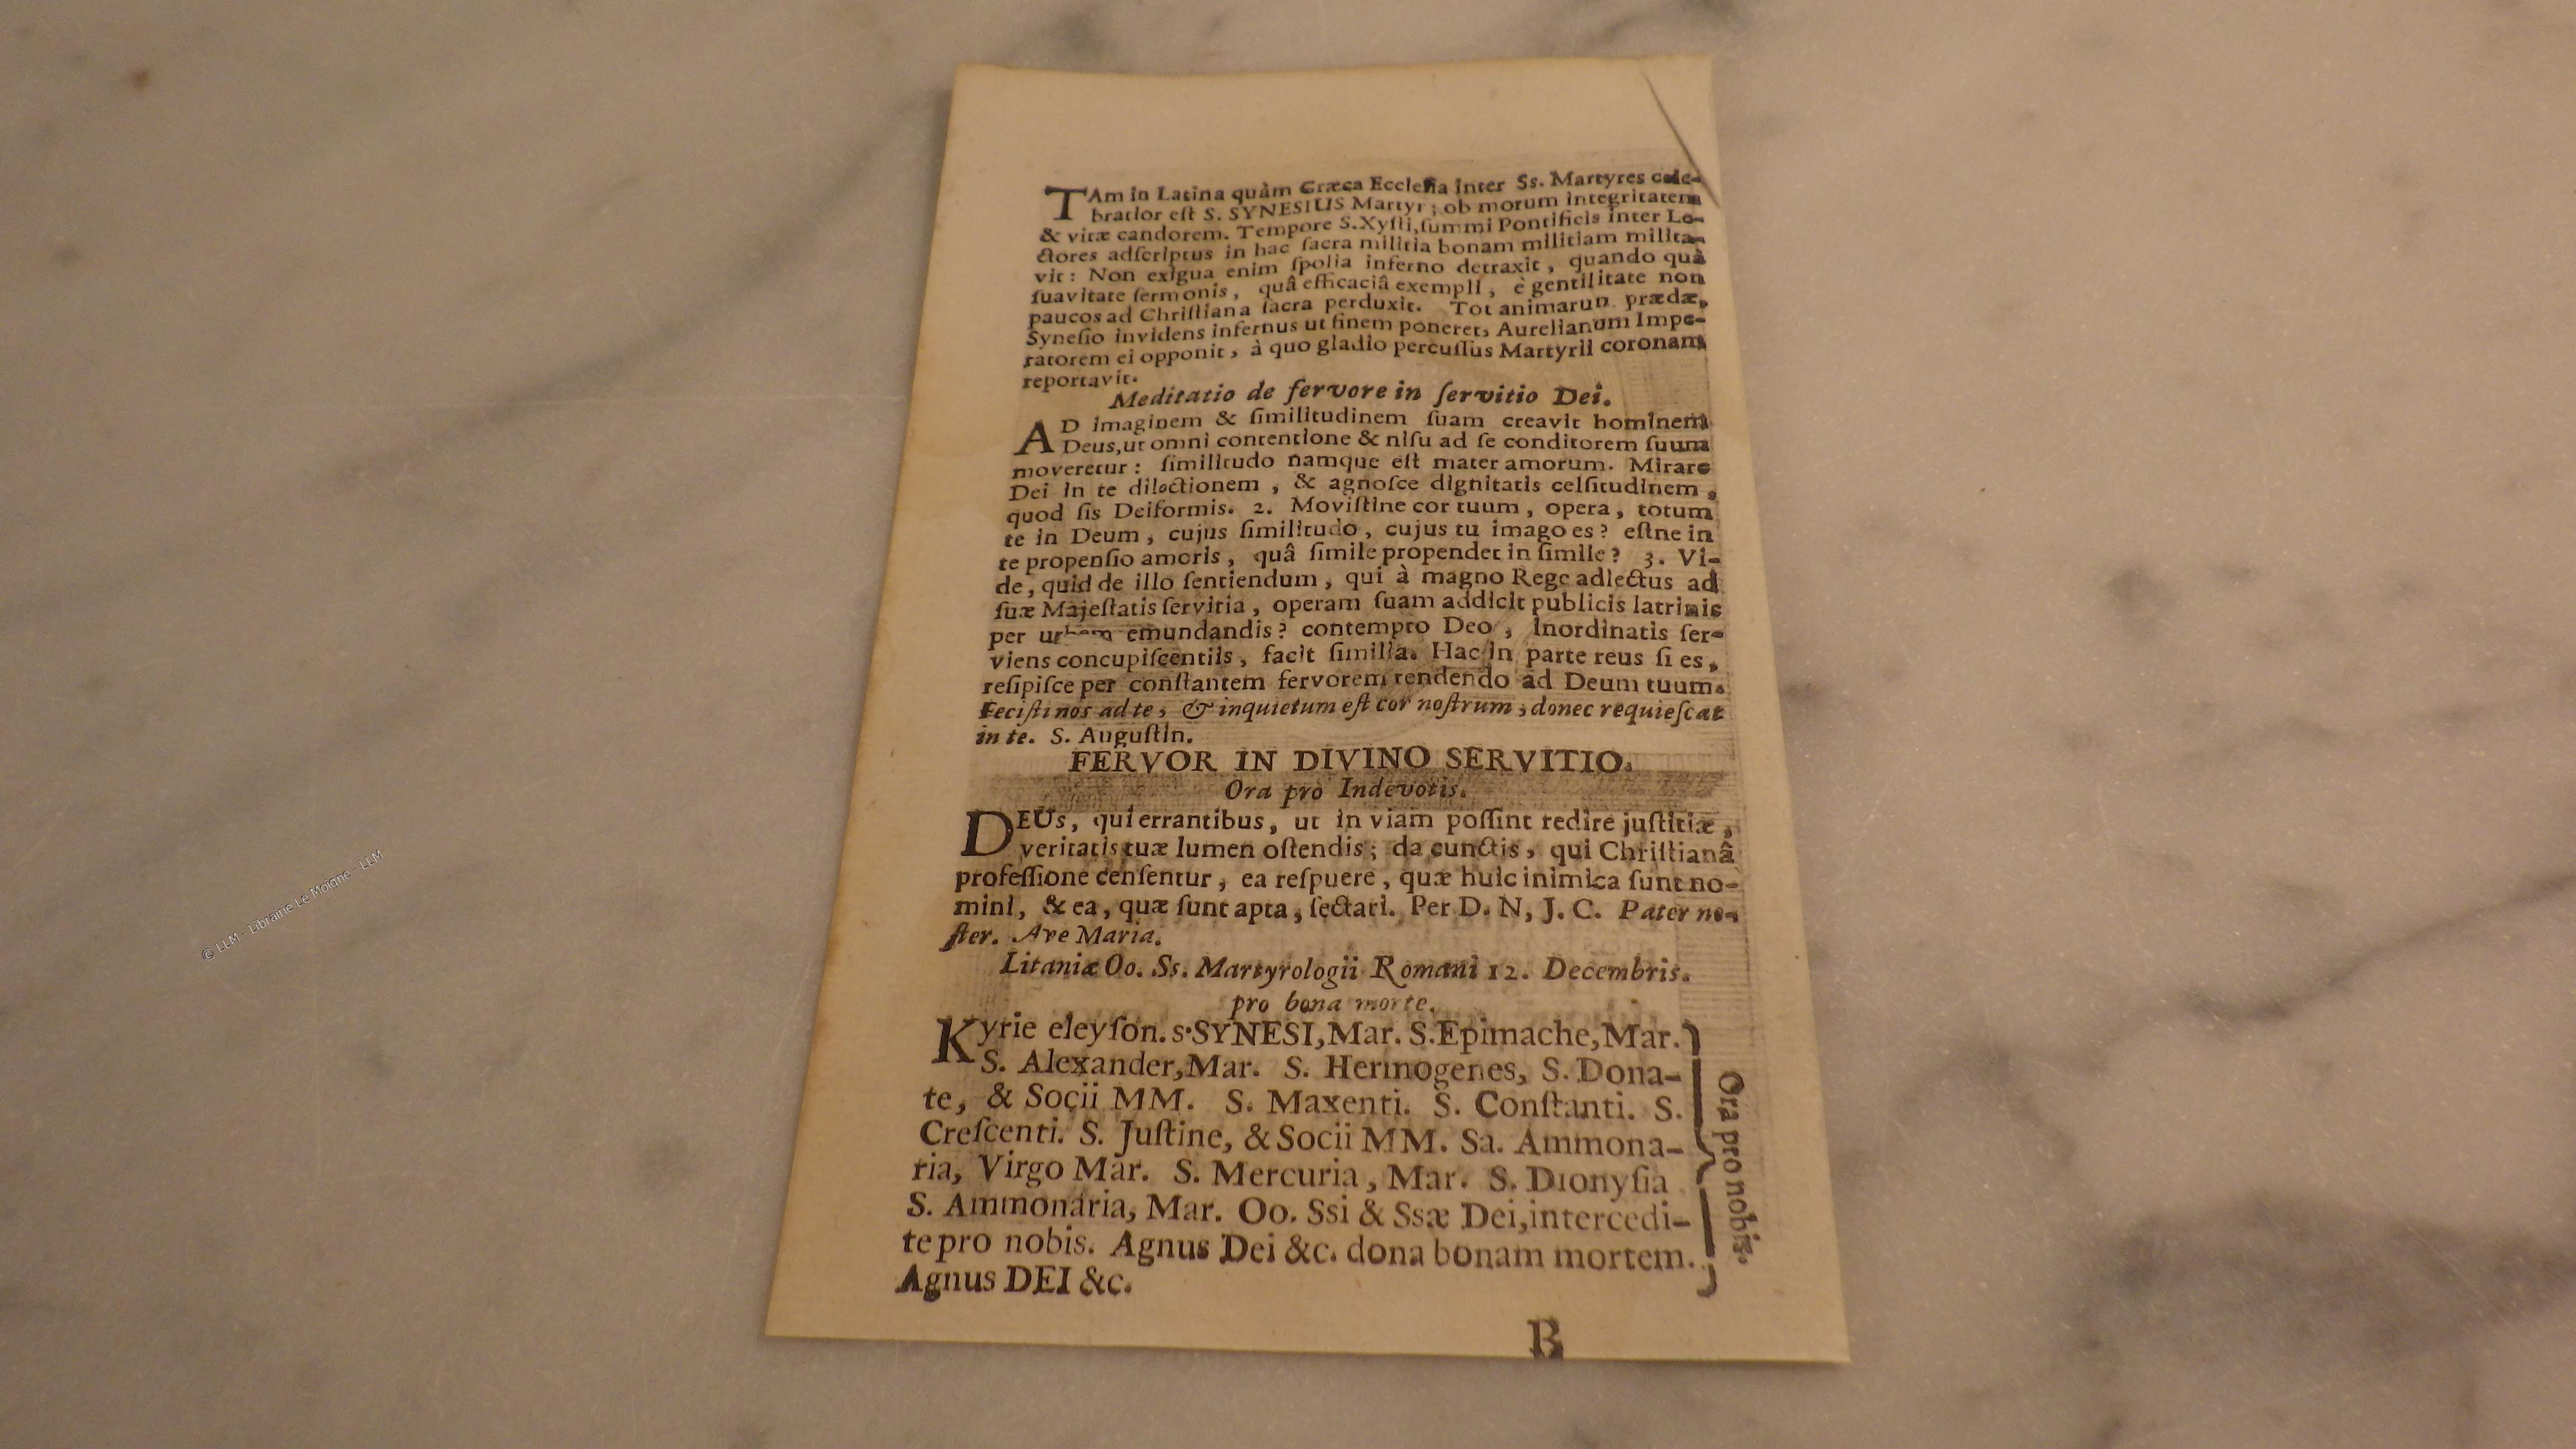 TAm in Latina quàm Græca Ecclesia inter Ss. Martyres cele-
bratior eſt S. SYNESIUS Martyr; ob morum integritatem
& vitæ candorem. Tempore S. Xyſti, ſummi Pontificis inter Le-
ctores adſcriptus in hac ſacra militia bonam militiam milita-
vit: Non exigua enim ſpolia inferno detraxit, quando quà
ſuavitate ſermonis, quâ efficaciâ exempli, è gentilitate non
paucos ad Chriſtiana ſacra perduxit. Tot animarun prædæ,
Syneſio invidens infernus ut finem poneret, Aurelianum Impe-
ratorem ei opponit, à quo gladio percuſſus Martyrii coronam
reportavit.
Meditatio de fervore in ſervitio Dei.
AD imaginem & ſimilitudinem ſuam creavit hominem
Deus, ut omni contentione & niſu ad ſe conditorem ſuum
moveretur: ſimilitudo namque eſt mater amorum. Mirare
Dei in te dilectionem, & agnoſce dignitatis celſitudinem,
quod ſis Deiformis. 2. Moviſtine cor tuum, opera, totum
te in Deum, cujus ſimilitudo, cujus tu imago es? eſtne in
te propenſio amoris, quâ ſimile propendet in ſimile? 3. Vi-
de, quid de illo ſentiendum, qui à magno Rege adlectus ad
ſuæ Majeſtatis ſervitia, operam ſuam addicit publicis latrinis
per urbem emundandis? contempto Deo, inordinatis ſer-
viens concupiſcentiis, facit ſimilia. Hac in parte reus ſi es,
reſipiſce per conſtantem fervorem tendendo ad Deum tuum.
Feciſti nos ad te, & inquietum eſt cor noſtrum, donec requieſcat
in te. S. Auguſtin.
FERVOR IN DIVINO SERVITIO.
Ora pro Indevotis.
DEUs, qui errantibus, ut in viam poſſint redire juſtitiæ,
veritatis tuæ lumen oſtendis; da cunctis, qui Chriſtianâ
profeſſione cenſentur, ea reſpuere, quæ huic inimica ſunt no-
mini, & ea, quæ ſunt apta, ſectari. Per D. N, J. C. Pater no-
ſter. Ave Maria.
Litaniæ Oo. Ss. Martyrologii Romani 12. Decembris.
pro bona morte.
Kyrie eleyſon. s. SYNESI, Mar. S. Epimache, Mar.
S. Alexander, Mar. S. Hermogenes, S. Dona-
te, & Socii MM. S. Maxenti. S. Conſtanti. S.
Creſcenti. S. Juſtine, & Socii MM. Sa. Ammona-
ria, Virgo Mar. S. Mercuria, Mar. S. Dionyſia
S. Ammonaria, Mar. Oo. Ssi & Ssæ Dei, intercedi-
te pro nobis. Agnus Dei &c. dona bonam mortem.
Agnus DEI &c.
Ora pro nobis.
B
© LLM - Librairie Le Moigne - LLM